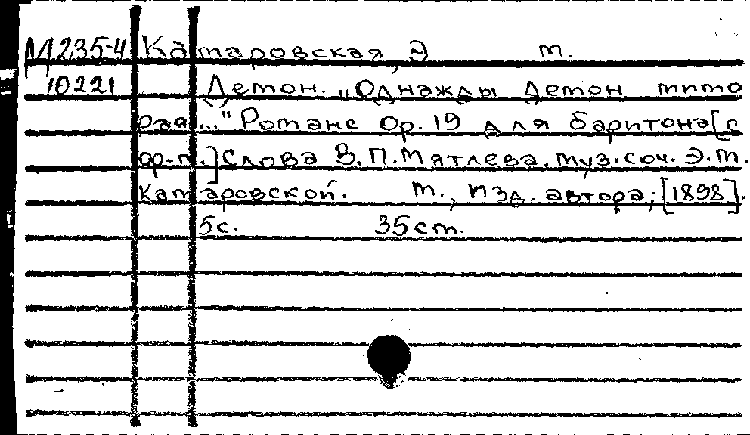 М235-4 Катаровская, Э м.
10221 Демон. „Однажды демон мимо
рая..." Романс Ор. 19 для баритона [с
фр-п.] Слова В.П. Мятлева, муз. соч. Э.М.
Катаровской. М., Изд. автора, [1898].
5с. 35см.